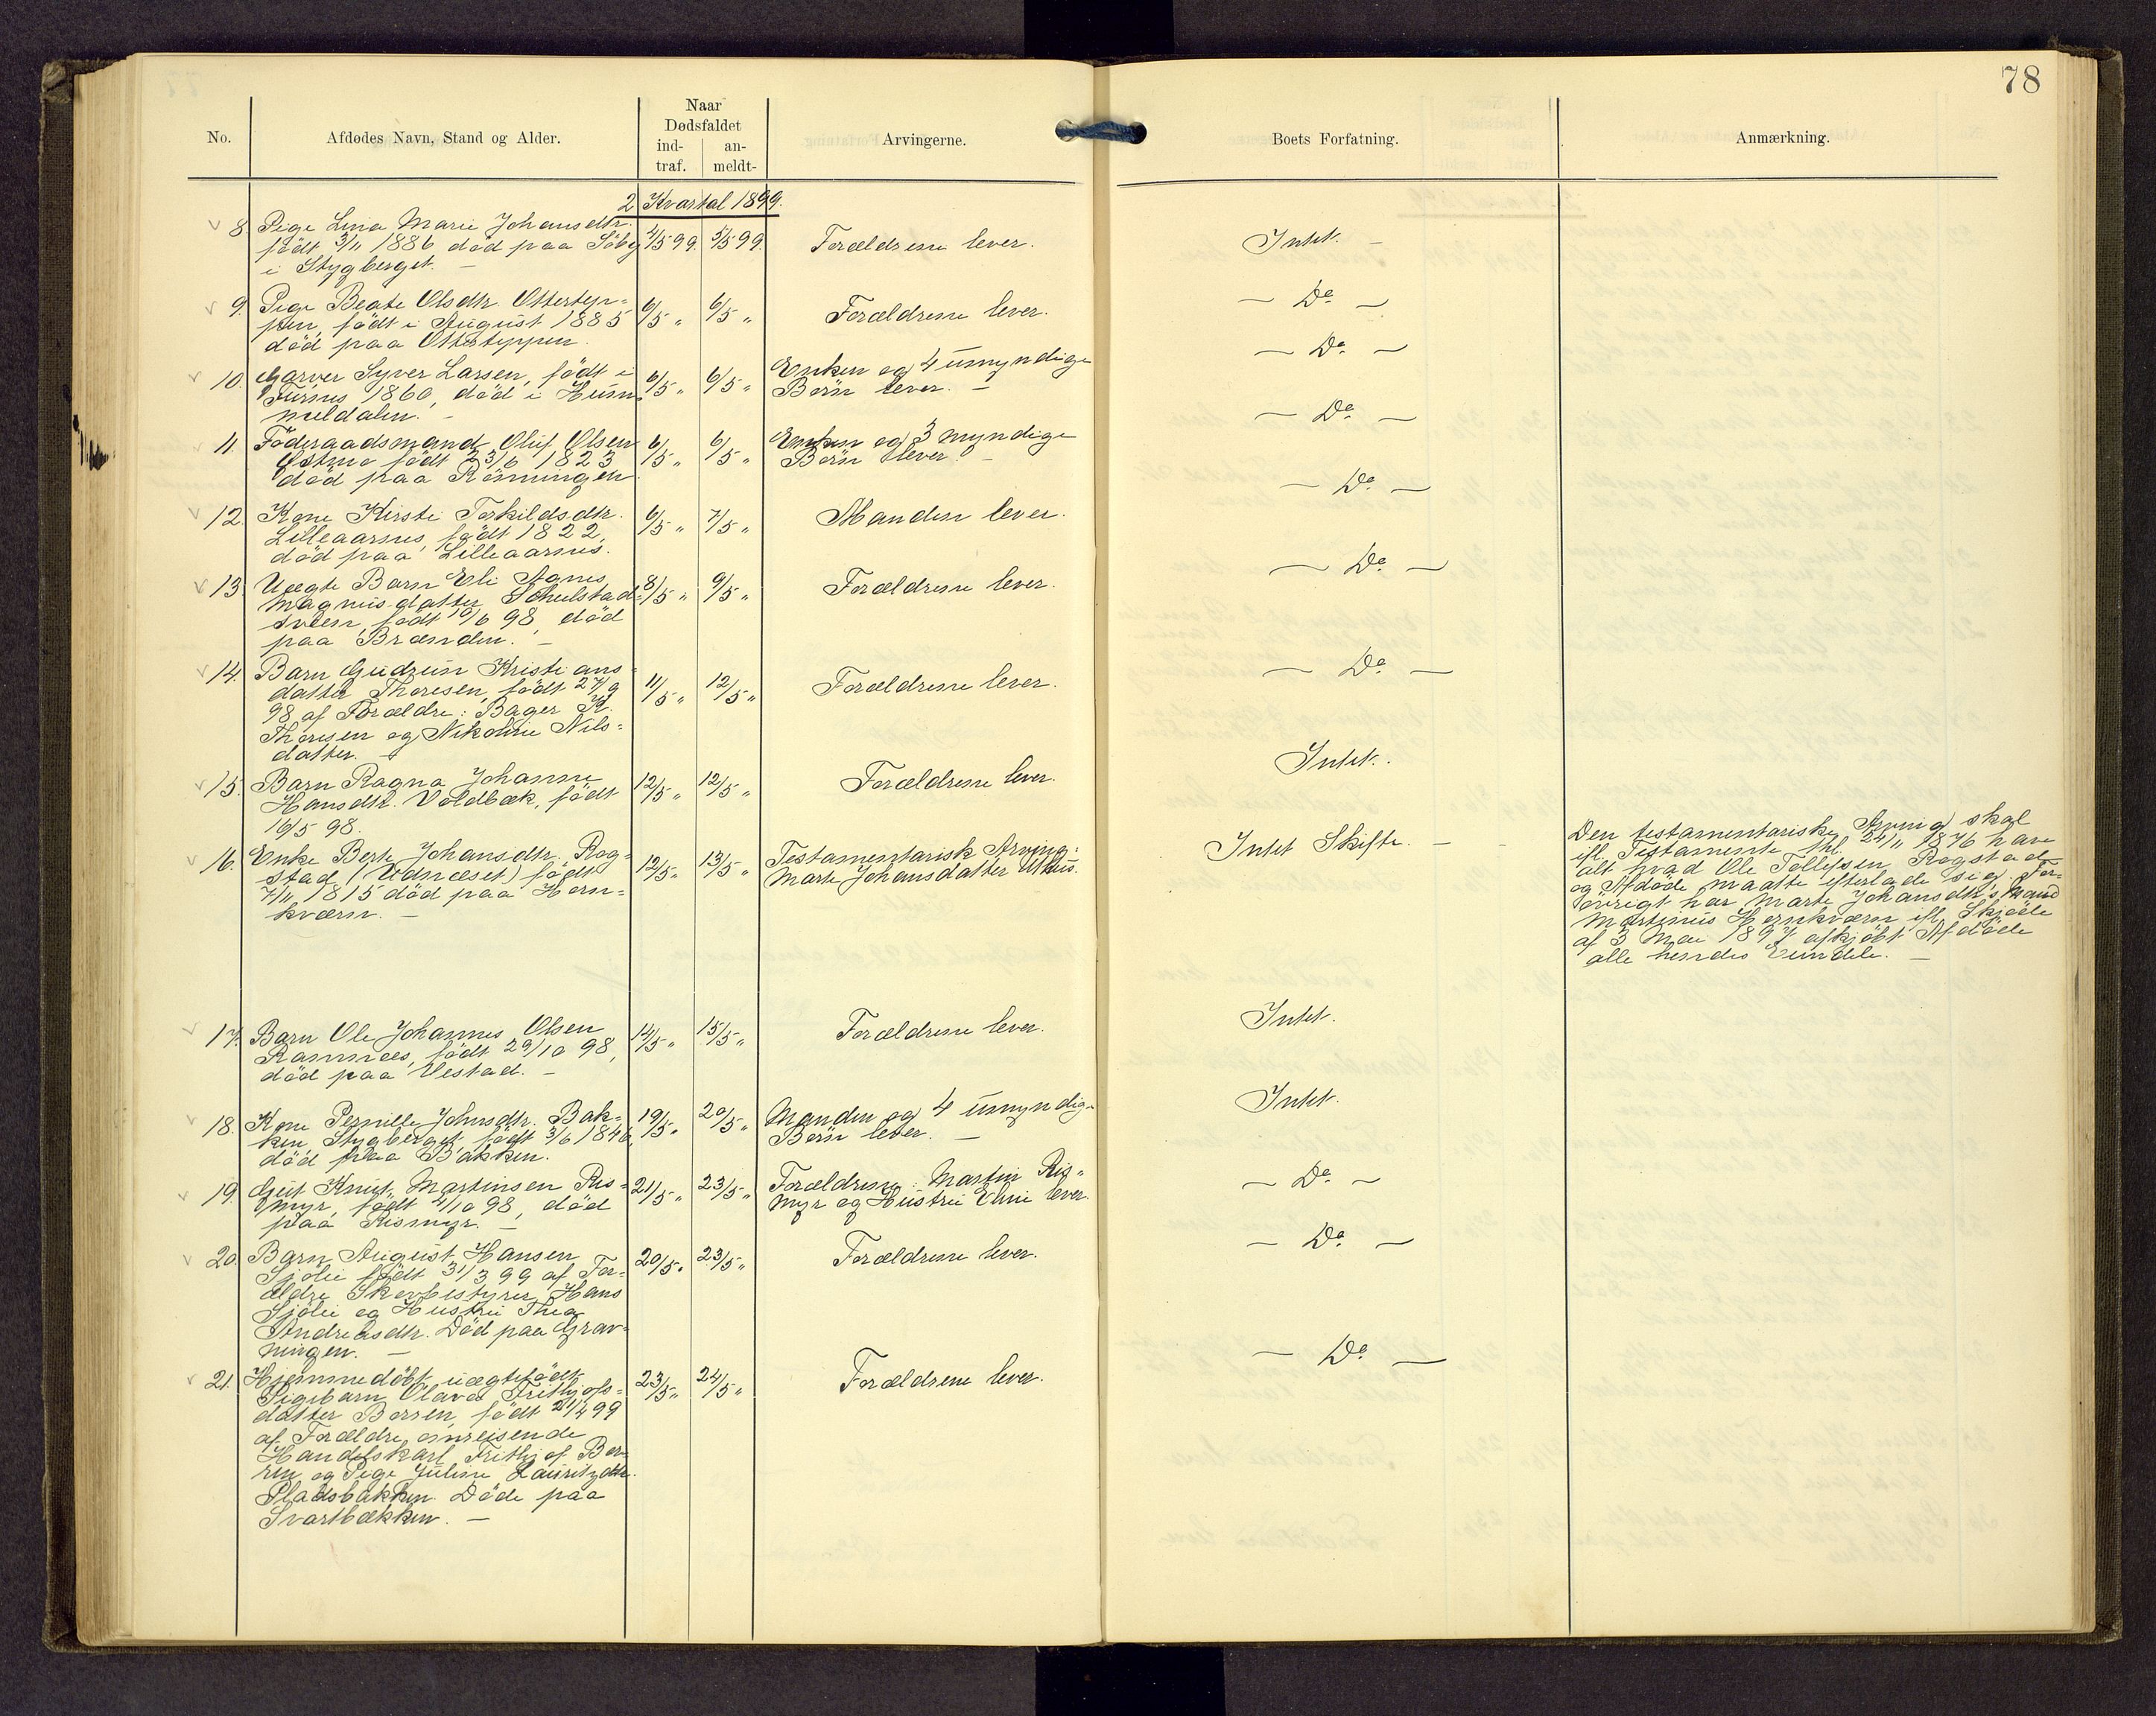 78
No.
Afdødes Navn, Stand og Alder.
Naar
Dødsfaldet
ind-
traf.
an-
meldt-
Arvingerne.
Boets Forfatning.
Anmærkning.
2 Kvartal 1899.
8. Pige Lina Marie Johansdtr. 4/5 99. 5/5 99. Forældrene lever. Intet. —
født 3/11 1886 død paa
i Stygberget. —
9. Pige Beate Olsdtr. Ottertep= 6/5 „ 6/5 „ Forældrene lever. — Do —
pen, født i August 1885
død paa Otterteppen.
10. Garver Syver Larsen, født i 6/5 „ 6/5 „ Enken og 4 umyndige — Do —
Furnes 1860, død i Hum= Børn lever. —
meldalen. —
11. Føderaadsmand Oluf Olsen 6/5 „ 6/5 „ Enken og 3 myndige — Do —
Østmo født 23/6 1823 Børn lever. —
død paa Rönningen
12. Kone Kirsti Torkildsdtr. 6/5 „ 7/5 „ Manden lever. — Do —
Lilleaarsnes, født 1822,
død paa Lilleaarsnes.
13. Uægte Barn Eli Agnes 8/5 „ 9/5 „ Forældrene lever. — Do —
Magnusdatter Schulstad=
sveen, født 19/6 98 død
paa Brænden. —
14. Barn Gudrun Kristians= 11/5 „ 12/5 „ Forældrene lever. — Do —
datter Thoresen, født 27/9
98 af Forældre: Bager K.
Thoresen og Nikoline Nils=
datter. —
15. Barn Ragna Johanne 12/5 „ 12/5 „ Forældrene lever. Intet.
Hansdtr. Voldbæk, født
16/5 98.
16. Enke Berte Johansdtr. Rog= 12/5 „ 13/5 „ Testamentarisk Arving: Intet Skifte. —
stad (Udnæset) født Marte Johansdatter Uthus.
7/11 1815 død paa Horn=
kværn. —
Den testamentariske Arving skal
ifl. Testamente thl. 24/11 1876 have
alt hvad Ole Tollefsen Rogstad
og Afdøde maatte efterlade sig. For=
øvrigt har Marte Johansdtr's Mand
Martinus Hornkværn ifl. Skjøde
af 3 Mai 1897 afkjøbt Afdøde
alle hendes Eiendele. —
17. Barn Ole Johannes Olsen 14/5 „ 15/5 „ Forældrene lever. Intet.
Ramnæs, født 29/10 98,
død paa Vestad. —
18. Kone Pernille Johnsdtr. Bak= 19/5 „ 20/5 „ Manden og 4 umyndige Intet.
ken, Stygberget, født 3/6 1846, Børn lever. —
død paa Bakken.
19. Gut Knut Martinsen Ris= 21/5 „ 23/5 „ Forældrene: Martin Ris= — Do —
myr, født 4/10 98, død myr og Hustru Eline lever.
paa Rismyr. —
20. Barn August Hansen 20/5 „ 23/5 „ Forældrene lever. — Do —
Sjølie født 31/3 99 af For=
ældre Skovbestyrer Hans
Sjølie og Hustru Thea
Andreasdtr. Død paa Grav=
ningen. —
21. Hjemmedøbt uægtefødt 23/5 „ 24/5 „ Forældrene lever. — Do —
Pigebarn Olava Frithjofs=
datter Borsen, født 21/4 99
af Forældre omreisende
Handelskarl Frithjof Bor=
sen og Pige Juline Lauritzdtr.
Pladsbakken. Døde paa
Svartbækken. —